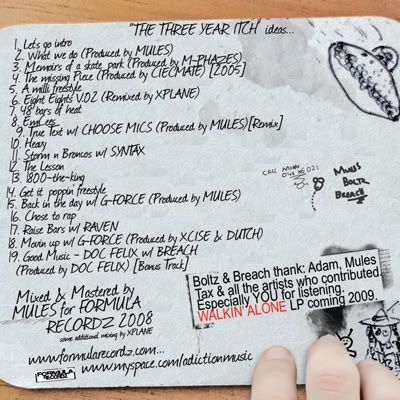 "THE THREE YEAR ITCH" ideas...
1. Lets go intro
2. What we do (Produced by MULES)
3. Memoirs of a skate park (Produced by M-PHAZES)
4. The missing Piece (Produced by CIECMATE) [2005]
5. A milli freestyle
6. Eight Eights V.02 (Remixed by XPLANE)
7. 48 bars of heat
8. EmCees
9. True Text w/ CHOOSE MICS (Produced by MULES)[Remix]
10. Heavy
11. Storm n Broncos w/ SYNTAX
12. The Lesson
13. 1800-the-king
14. Get it poppin freestyle
15. Back in the day w/ G-FORCE (Produced by MULES)
16. Chose to rap
17. Raise Bars w/ RAVEN
18. Movin up w/ G-FORCE (Produced by XCISE & DUTCH)
19. Good Music - DOC FELIX w/ BREACH
(Produced by DOC FELIX) [Bonus Track]
CALL
MULES
BOLTZ
BREACH
Mixed & Mastered by
MULES for FORMULA
RECORDZ 2008
some additional mixing by XPLANE
Boltz & Breach thank: Adam, Mules
Tax & all the artists who contributed.
Especially YOU for listening.
WALKIN' ALONE LP coming 2009.
www.formularecordz.com...
www.myspace.com/adictionmusic
FORMULA
RECORDZ